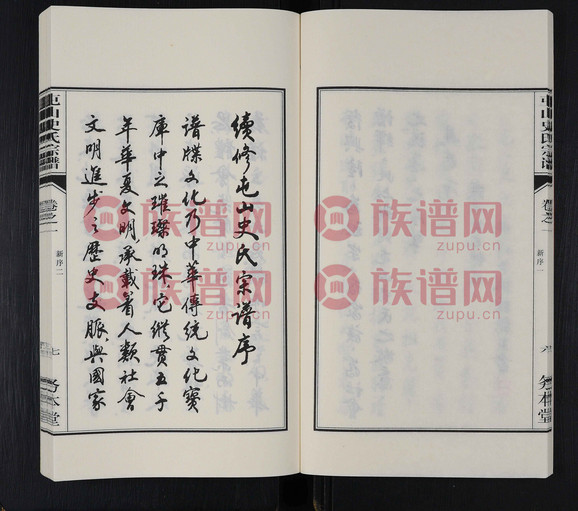 屯山史氏宗譜
卷之一
新序二
六
务本堂
續修屯山史氏宗譜序
譜牒文化乃中華傳統文化寶
庫中之璀璨明珠它縱貫五千
年華夏文明承載着人類社會
文明進步之歷史支脈與國家
屯山史氏宗譜
卷之一
新序二
七
务本堂
族谱网
zupu.cn
族谱网
zupu.cn
族谱网
zupu.cn
族谱网
zupu.cn